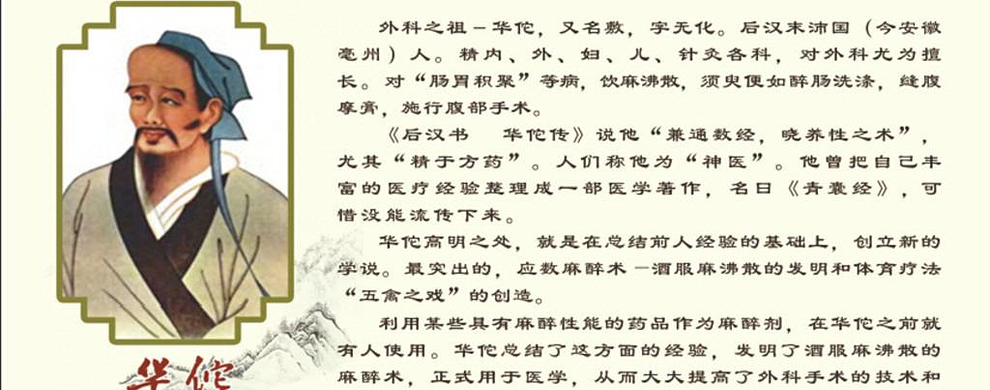 外科之祖－华佗，又名敷，字无化。后汉末沛国（今安徽
亳州）人。精内、外、妇、儿、针灸各科，对外科尤为擅
长。对“肠胃积聚”等病，饮麻沸散，须臾便如醉肠洗涤，缝腹
摩膏，施行腹部手术。
《后汉书　华佗传》说他“兼通数经，晓养性之术”，
尤其“精于方药”。人们称他为“神医”。他曾把自己丰
富的医疗经验整理成一部医学著作，名曰《青囊经》，可
惜没能流传下来。
华佗高明之处，就是在总结前人经验的基础上，创立新的
学说。最突出的，应数麻醉术－酒服麻沸散的发明和体育疗法
“五禽之戏”的创造。
利用某些具有麻醉性能的药品作为麻醉剂，在华佗之前就
有人使用。华佗总结了这方面的经验，发明了酒服麻沸散的
麻醉术，正式用于医学，从而大大提高了外科手术的技术和
华佗